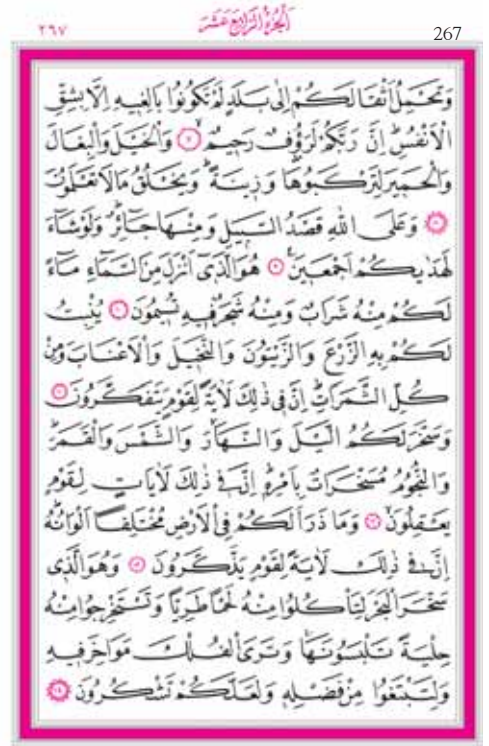 الجزء الرابع عشر
٢٦٧
267
وَتَحْمِلُ اَثْقَالَكُمْ اِلٰى بَلَدٍ لَمْ تَكُونُوا بَالِغِيهِ اِلَّا بِشِقِّ
الْاَنْفُسِۜ اِنَّ رَبَّكُمْ لَرَؤُ۫فٌ رَح۪يمٌۙ ٧ وَالْخَيْلَ وَالْبِغَالَ
وَالْحَم۪يرَ لِتَرْكَبُوهَا وَز۪ينَةًۜ وَيَخْلُقُ مَا لَا تَعْلَمُونَ
٨ وَعَلَى اللّٰهِ قَصْدُ السَّب۪يلِ وَمِنْهَا جَٓائِرٌۜ وَلَوْ شَٓاءَ
لَهَدٰيكُمْ اَجْمَع۪ينَ۟ ٩ هُوَ الَّذ۪ٓي اَنْزَلَ مِنَ السَّمَٓاءِ مَٓاءً
لَكُمْ مِنْهُ شَرَابٌ وَمِنْهُ شَجَرٌ ف۪يهِ تُس۪يمُونَ ١٠ يُنْبِتُ
لَكُمْ بِهِ الزَّرْعَ وَالزَّيْتُونَ وَالنَّخ۪يلَ وَالْاَعْنَابَ وَمِنْ
كُلِّ الثَّمَرَاتِۜ اِنَّ ف۪ي ذٰلِكَ لَاٰيَةً لِقَوْمٍ يَتَفَكَّرُونَ ١١
وَسَخَّرَ لَكُمُ الَّيْلَ وَالنَّهَارَۙ وَالشَّمْسَ وَالْقَمَرَۜ
وَالنُّجُومُ مُسَخَّرَاتٌ بِاَمْرِه۪ۜ اِنَّ ف۪ي ذٰلِكَ لَاٰيَاتٍ لِقَوْمٍ
يَعْقِلُونَۙ ١٢ وَمَا ذَرَاَ لَكُمْ فِي الْاَرْضِ مُخْتَلِفًا اَلْوَانُهُۜ
اِنَّ ف۪ي ذٰلِكَ لَاٰيَةً لِقَوْمٍ يَذَّكَّرُونَ ١٣ وَهُوَ الَّذ۪ي
سَخَّرَ الْبَحْرَ لِتَأْكُلُوا مِنْهُ لَحْمًا طَرِيًّا وَتَسْتَخْرِجُوا مِنْهُ
حِلْيَةً تَلْبَسُونَهَاۚ وَتَرَى الْفُلْكَ مَوَاخِرَ ف۪يهِ
وَلِتَبْتَغُوا مِنْ فَضْلِه۪ وَلَعَلَّكُمْ تَشْكُرُونَ ١٤